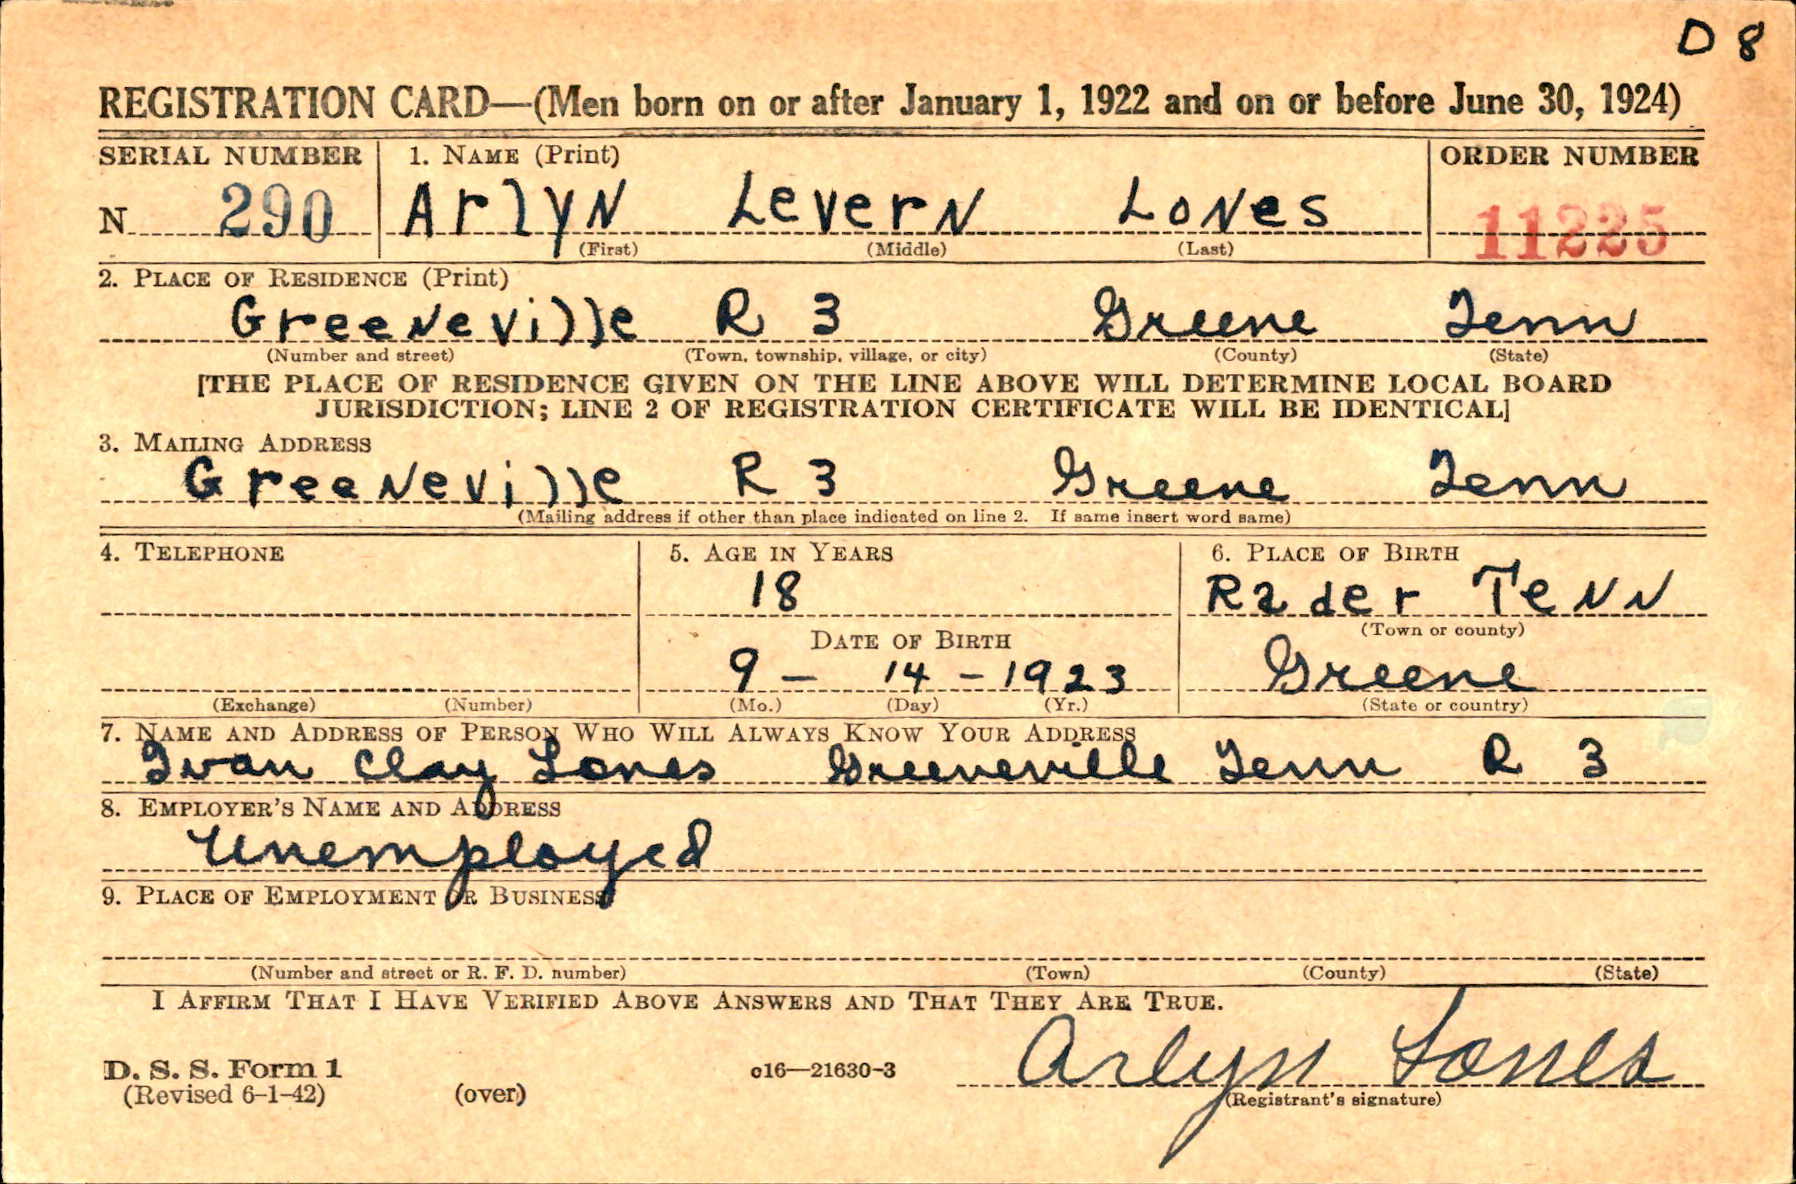 D 8
REGISTRATION CARD—(Men born on or after January 1, 1922 and on or before June 30, 1924)
SERIAL NUMBER 1. NAME (Print) ORDER NUMBER
N 290 Arlyn Levern Lones 11225
(First) (Middle) (Last)
2. PLACE OF RESIDENCE (Print)
Greeneville R 3 Greene Tenn
(Number and street) (Town, township, village, or city) (County) (State)
[THE PLACE OF RESIDENCE GIVEN ON THE LINE ABOVE WILL DETERMINE LOCAL BOARD
JURISDICTION; LINE 2 OF REGISTRATION CERTIFICATE WILL BE IDENTICAL]
3. MAILING ADDRESS
Greeneville R 3 Greene Tenn
(Mailing address if other than place indicated on line 2. If same insert word same)
4. TELEPHONE 5. AGE IN YEARS 6. PLACE OF BIRTH
18 Rader Tenn
(Town or county)
DATE OF BIRTH
9 - 14 - 1923 Greene
(Exchange) (Number) (Mo.) (Day) (Yr.) (State or country)
7. NAME AND ADDRESS OF PERSON WHO WILL ALWAYS KNOW YOUR ADDRESS
Ivan Clay Lones Greeneville Tenn R 3
8. EMPLOYER'S NAME AND ADDRESS
Unemployed
9. PLACE OF EMPLOYMENT OR BUSINESS
(Number and street or R. F. D. number) (Town) (County) (State)
I AFFIRM THAT I HAVE VERIFIED ABOVE ANSWERS AND THAT THEY ARE TRUE.
D. S. S. Form 1 c16—21630-3 Arlyn Lones
(Revised 6-1-42) (over) (Registrant's signature)